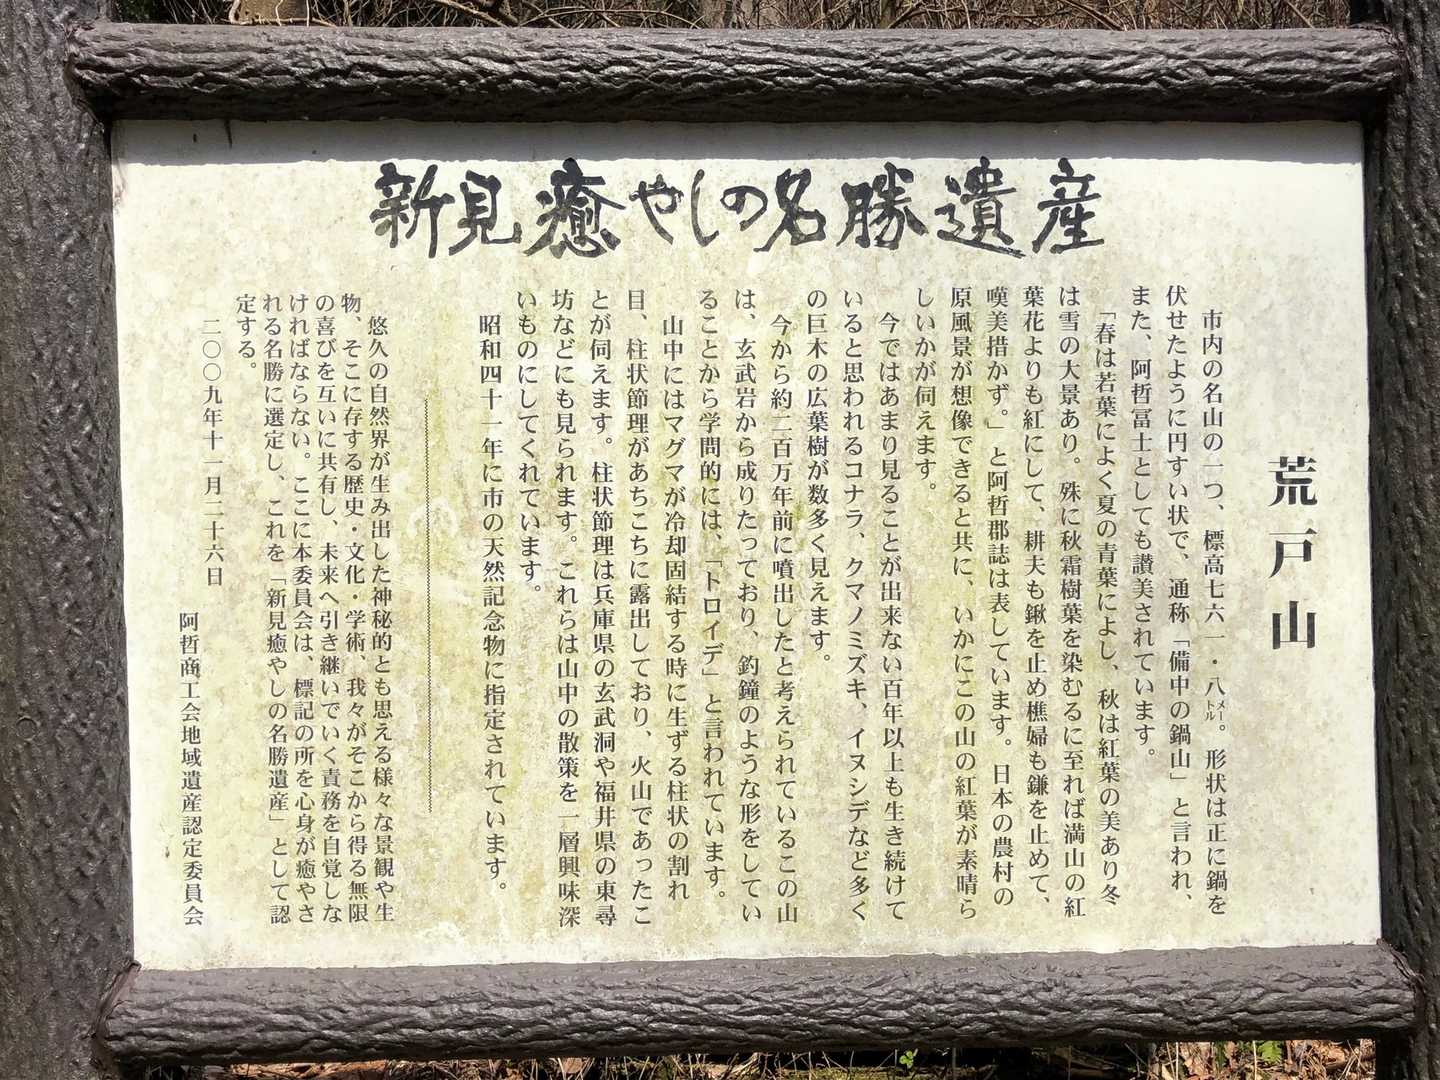 新見癒やしの名勝遺産
荒戸山
市内の名山の一つ、標高七六一・八メートル。形状は正に鍋を
伏せたように円すい状で、通称「備中の鍋山」と言われ、
また、阿哲冨士としても讃美されています。
「春は若葉によく夏の青葉によし、秋は紅葉の美あり冬
は雪の大景あり。殊に秋霜樹葉を染むるに至れば満山の紅
葉花よりも紅にして、耕夫も鍬を止め樵婦も鎌を止めて、
嘆美措かず。」と阿哲郡誌は表しています。日本の農村の
原風景が想像できると共に、いかにこの山の紅葉が素晴ら
しいかが伺えます。
今ではあまり見ることが出来ない百年以上も生き続けて
いると思われるコナラ、クマノミズキ、イヌシデなど多く
の巨木の広葉樹が数多く見えます。
今から約二百万年前に噴出したと考えられているこの山
は、玄武岩から成りたっており、釣鐘のような形をしてい
ることから学問的には、「トロイデ」と言われています。
山中にはマグマが冷却固結する時に生ずる柱状の割れ
目、柱状節理があちこちに露出しており、火山であったこ
とが伺えます。柱状節理は兵庫県の玄武洞や福井県の東尋
坊などにも見られます。これらは山中の散策を一層興味深
いものにしてくれています。
昭和四十一年に市の天然記念物に指定されています。
悠久の自然界が生み出した神秘的とも思える様々な景観や生
物、そこに存する歴史・文化・学術、我々がそこから得る無限
の喜びを互いに共有し、未来へ引き継いでいく責務を自覚しな
ければならない。ここに本委員会は、標記の所を心身が癒やさ
れる名勝に選定し、これを「新見癒やしの名勝遺産」として認
定する。
二〇〇九年十一月二十六日
阿哲商工会地域遺産認定委員会